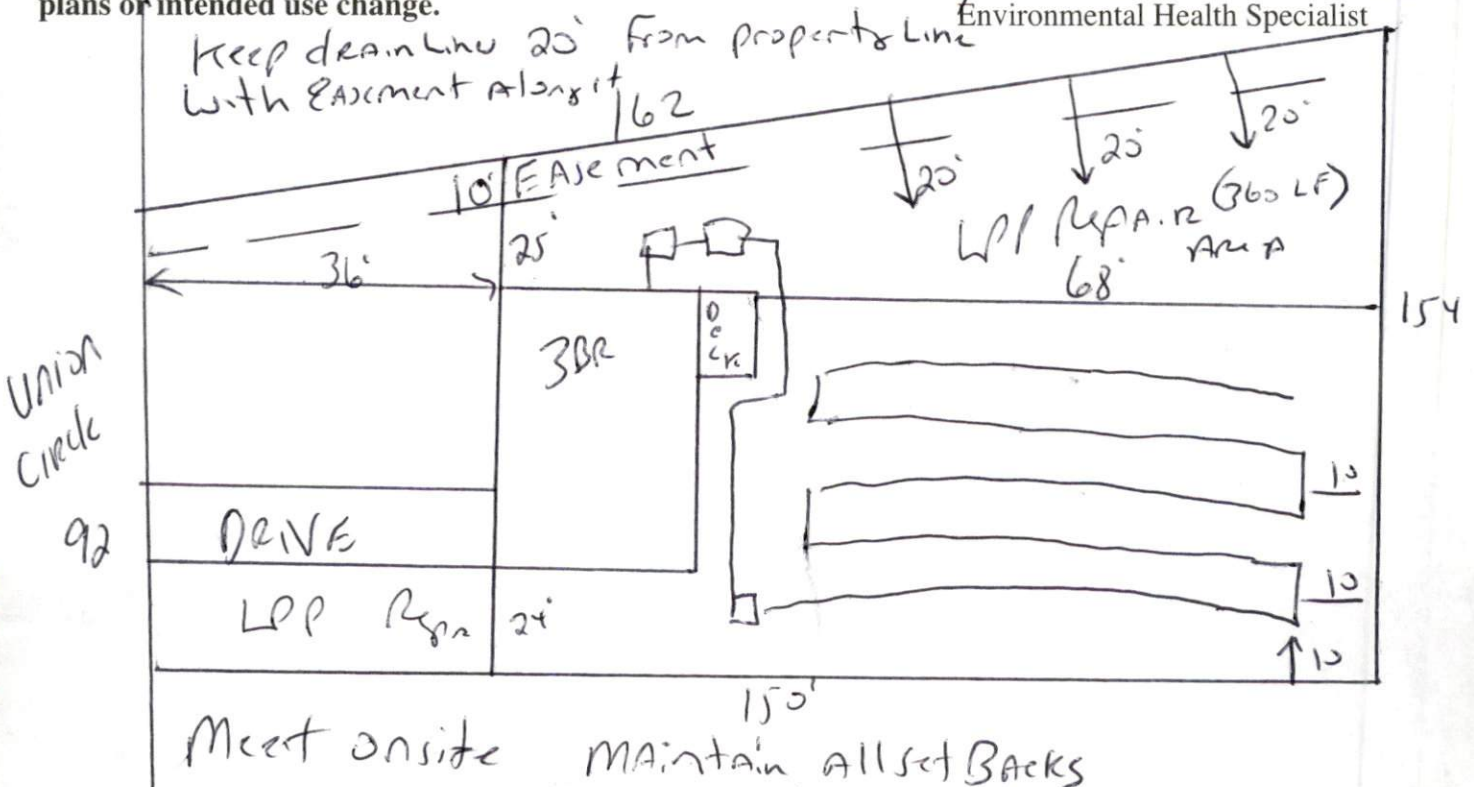 plans or intended use change.
Environmental Health Specialist
Keep drain Line 20' From property Line
with Easement Along it
162
10' EASement
20'
20'
20'
LPP RepAir (360 LF)
AreA
68'
25'
36'
154
Deck
3BR
Union
Circle
10
92
DRIVE
10
LPP Repr
24'
10
150'
Meet onsite MAintAin All setBAcks